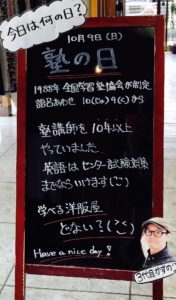 今日は何の日?
10月9日(日)
塾の日
1988年 全国学習塾協会が制定
語呂あわせ 10(じゅ)9(く)から
塾講師を10年以上
やっていました
英語はセンター試験対策
までならいけます(^^)
学べる洋服屋
どない?(^^)
Have a nice day!
3代目かずのり